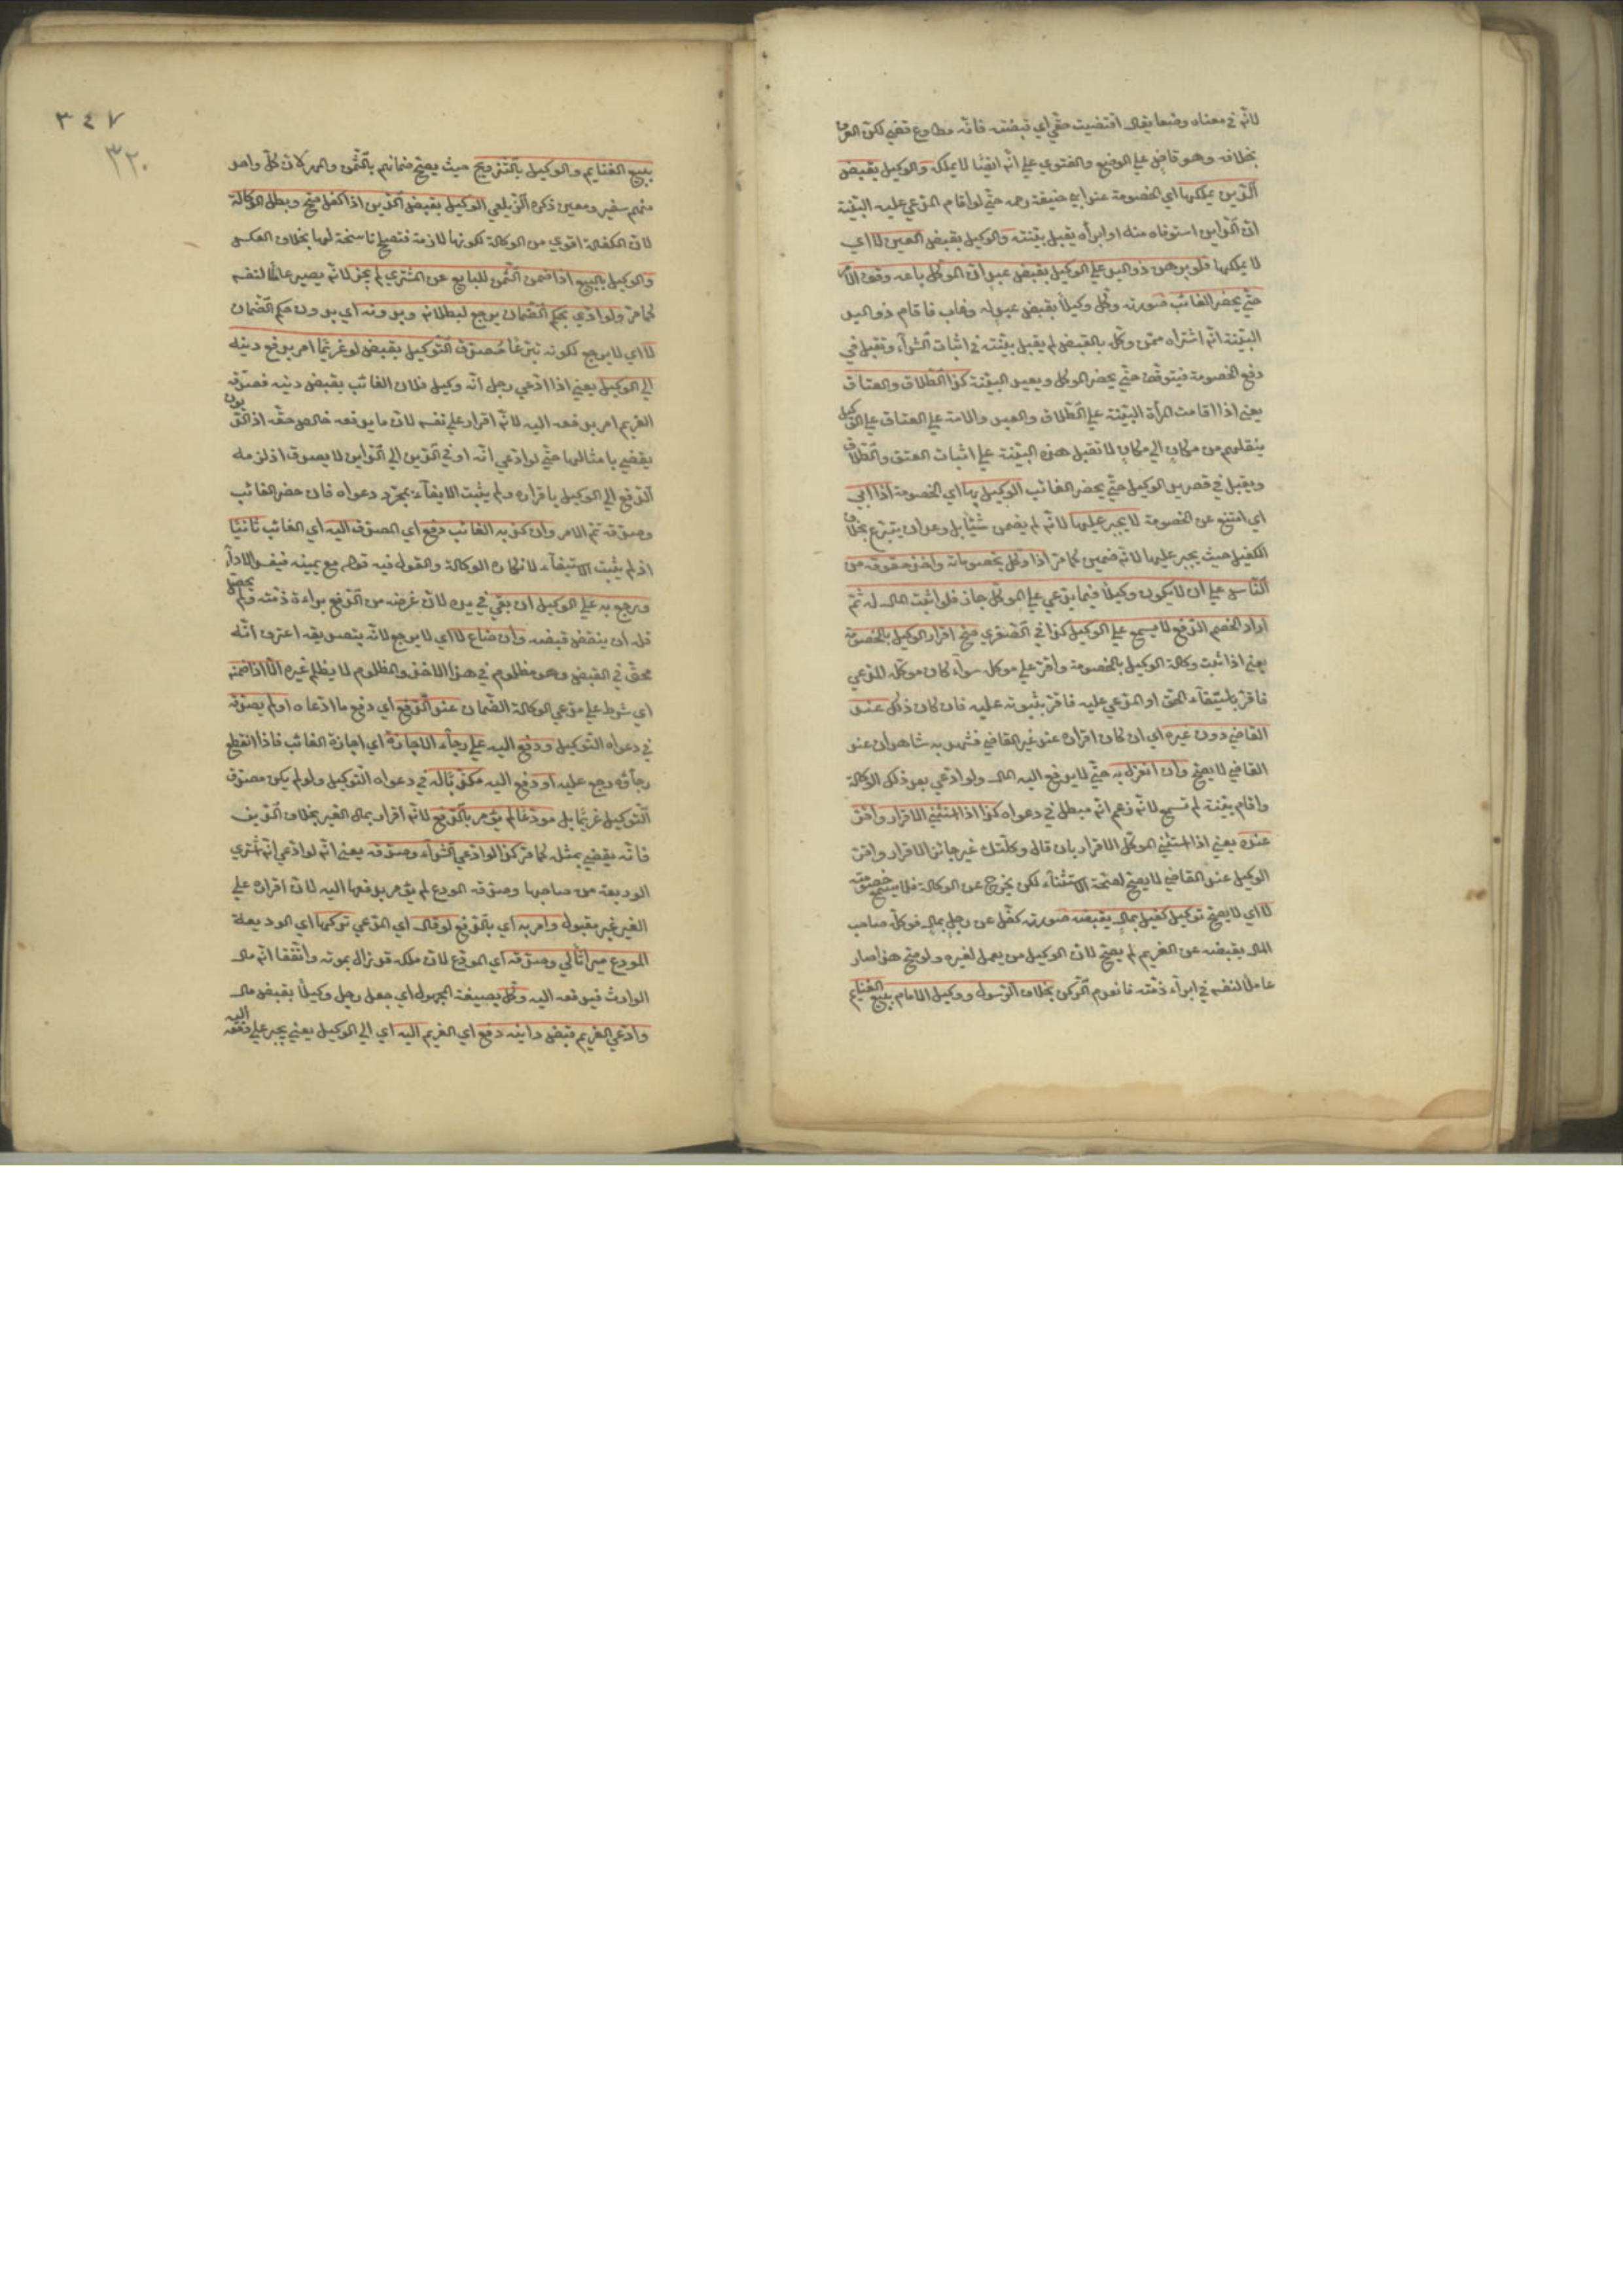 لانّه في معناه وضعا يقال اقتضيت حقّي اي قبضته فانّه مطاوع قضي لكنّ العرف
بخلافه وهو قاض علي الوضع والفتوي علي انّه ايضًا لا يملكه والوكيل بقبض
الدّين يملكها اي الخصومة عند ابي حنيفة رحمه حتّي لو اقام المدّعي عليه البيّنة
انّ الدّاين استوفاه منه او ابرأه يقبل بيّنته والوكيل بقبض العين لا اي
لا يملكها فلو برهن ذو اليد علي الوكيل بقبض عبد انّ الموكّل باعه وقف الامر
حتّي يحضر الغائب صورته وكّل وكيلاً بقبض عبد له وغاب فاقام ذو اليد
البيّنة انّه اشتراه ممّن وكّله بالقبض لم يقبل بيّنته في اثبات الشّرآء وتقبل في
دفع الخصومة فيتوقّف حتّي يحضر الموكل ويعيد البيّنة كذا الطّلاق والعتاق
يعني اذا اقامت المرأة البيّنة علي الطّلاق والعبد والامة علي العتاق علي الوكيل
بنقلهم من مكان الي مكان لا تقبل هذه البيّنة علي اثبات العتق والطّلاق
ويقبل في قصر يد الوكيل حتّي يحضر الغائب الوكيل بها اي الخصومة اذا ابي
اي امتنع عن الخصومة لا يجبر عليها لانّه لم يضمن شيئًا بل وعد ان يتبرّع بخلاف
الكفيل حيث يجبر عليها لانّه ضمين كما مرّ اذا وكّل بخصوماته واخذ حقوقه من
النّاس علي ان لا يكون وكيلاً فيما يدّعي علي الموكّل جاز فلو اثبت المال له ثمّ
اراد الخصم الدّفع لا يسمع علي الوكيل كذا في الصّغري صحّ اقرار الوكيل بالخصومة
يعني اذا ثبت وكالة الوكيل بالخصومة واقرّ علي موكله سوآء كان موكّله المدّعي
فاقرّ باستيفآء الحقّ او المدّعي عليه فاقرّ بثبوته عليه فان كان ذلك عند
القاضي دون غيره اي ان كان اقراره عند غير القاضي فشهد به شاهدان عند
القاضي لا يصحّ وان انعزل به حتّي لا يدفع اليه المال ولو ادّعي بعد ذلك الوكالة
واقام بيّنة لم تسمع لانّه زعم انّه مبطل في دعواه كذا اذا استثني الاقرار واقرّ
عنده يعني اذا استثني الموكّل الاقرار بان قال وكلّتك غير جائز الاقرار واقرّ
الوكيل عند القاضي لا يصحّ لصحّة الاستثنآء لكن يخرج عن الوكالة فلا يسمع خصومته
لا اي لا يصحّ توكيل كفيل بمال بقبضه صورته كفّل عن رجل بمال فوكّله صاحب
المال بقبضه عن الغريم لم يصحّ لانّ الوكيل من يعمل لغيره ولو صحّ هذا صار
عاملاً لنفسه في ابرآء ذمّته فانعدم الرّكن بخلاف الرّسول ووكيل الامام ببيع الغنايم
ببيع الغنايم والوكيل بالتّزويج حيث يصحّ ضمانهم بالثّمن والمهر لانّ كلّ واحد
منهم سفير ومعبر ذكره الزّيلعي الوكيل بقبض الدّين اذا كفل صحّ وبطل الوكالة
لانّ الكفالة اقوي من الوكالة لكونها لازمة فتصلح ناسخة لها بخلاف العكس
والوكيل بالبيع اذا ضمن الثّمن للبايع عن المشتري لم يجز لانّه يصير عاملًا لنفسه
كما مرّ ولو ادّي بحكم الضّمان يرجع لبطلانه وبدونه اي بدون حكم الضّمان
لا اي لا يرجع لكونه تبرّعًا مُصدّق التّوكيل بقبض لو غريمًا امر بدفع دينه
الي الوكيل يعني اذا ادّعي رجل انّه وكيل فلان الغائب بقبض دينه فصدّقه
الغريم امر بدفعه اليه لانّه اقرار علي نفسه لانّ ما يدفعه خالص حقّه اذ الدّيون
يقضي بامثالها حتّي لو ادّعي انّه اوفي الدّين الي الدّاين لا يصدق اذ لزمه
الدّفع الي الوكيل باقراره ولم يثبت الايفآء بمجرّد دعواه فان حضر الغائب
وصدّقه تمّ الامر وان كذّبه الغائب دفع اي المصدّق اليه اي الغائب ثانيًا
اذ لم يثبت الاستيفآء لانكاره الوكالة والقول فيه قوله مع يمينه فيفسد الادآء
ويرجع به علي الوكيل ان بقي في يده لانّ غرضه من الدّفع براءة ذمّته ولم يحصل
فله ان ينقض قبضه وان ضاع لا اي لا يرجع لانّه بتصديقه اعترف انّه
محقّ في القبض وهو مظلوم في هذا الاخذ والمظلوم لا يظلم غيره الّا اذا ضمّنه
اي شرط علي مدّعي الوكالة الضّمان عند الدّفع اي دفع ما ادّعاه او لم يصدّقه
في دعواه التّوكيل ودفع اليه علي رجآء الاجازة اي اجازة الغائب فاذا انقطع
رجآؤه رجع عليه او دفع اليه مكذّبًا له في دعواه التّوكيل ولو لم يكن مصدّق
التّوكيل غريمًا بل مودَعًا لم يؤمر بالدّفع لانّه اقرار بمال الغير بخلاف الدّين
فانّه يقضي بمثله كما مرّ كذا لو ادّعي الشّرآء وصدّقه يعني انّه لو ادّعي انّه اشتري
الوديعة من صاحبها وصدّقه المودع لم يؤمر بدفعها اليه لانّ اقراره علي
الغير غير مقبول وامر به اي بالدّفع لو قال اي المدّعي تركها اي الوديعة
المودع ميراثًا لي وصدّقه اي المودَع لانّ ملكه قد زال بموته واتّفقا انّه مال
الوارث فيدفعه اليه وُكّل بصيغة المجهول اي جعل رجل وكيلًا بقبض مال
وادّعي الغريم قبض داينه دفع اي الغريم اليه اي الي الوكيل يعني يجبر علي دفعه اليه
٣٤٧
٣٢٠